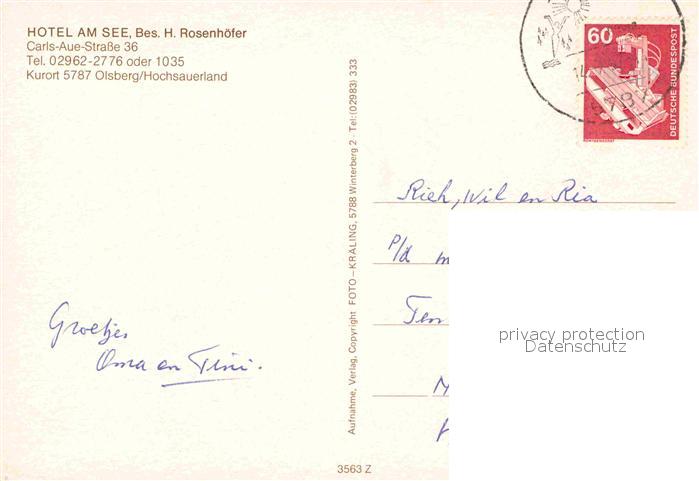 HOTEL AM SEE, Bes. H. Rosenhöfer
Carls-Aue-Straße 36
Tel. 02962-2776 oder 1035
Kurort 5787 Olsberg/Hochsauerland
Groetjes
Oma en Tini.
Aufnahme, Verlag, Copyright FOTO–KRALING, 5788 Winterberg 2 · Tel: (02983) 333
3563 Z
60
DEUTSCHE BUNDESPOST
14
5787
Rieh, Wil en Ria
P/a m
Ten
M
privacy protection
Datenschutz